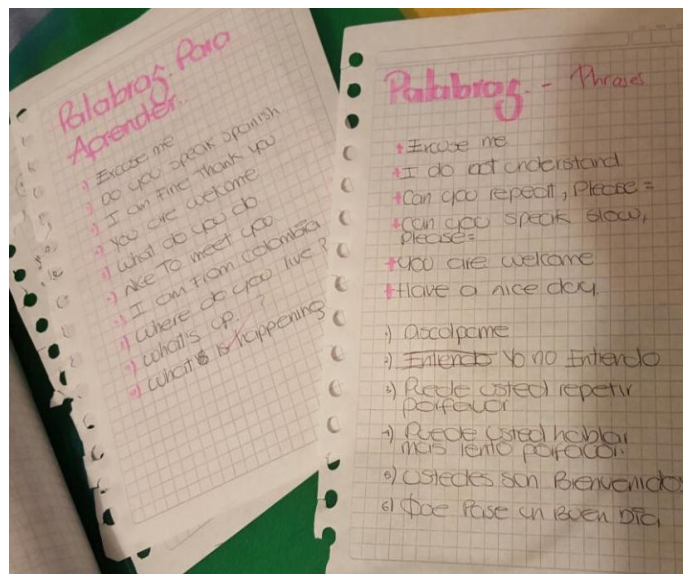 Palabras Para
Aprender.
Excuse me
Do you speak Spanish
I am Fine Thank you
You are welcome
What do you do
Nice To meet you
I am From colombia
Where do you live?
What's up. ?
What is happening
Palabras - Phrases
+ Excuse me
+ I do not understand
+ Can you repeat, Please =
+ can you speak slow,
Please =
+ you are welcome
+ Have a nice day.
1) Discolpame
2) Yo no Entiendo
3) Puede usted repetir
porfavor
4) Puede usted hablar
mas lento porfavor.
5) Ustedes son Bienvenidos
6) Que Pase un Buen Día